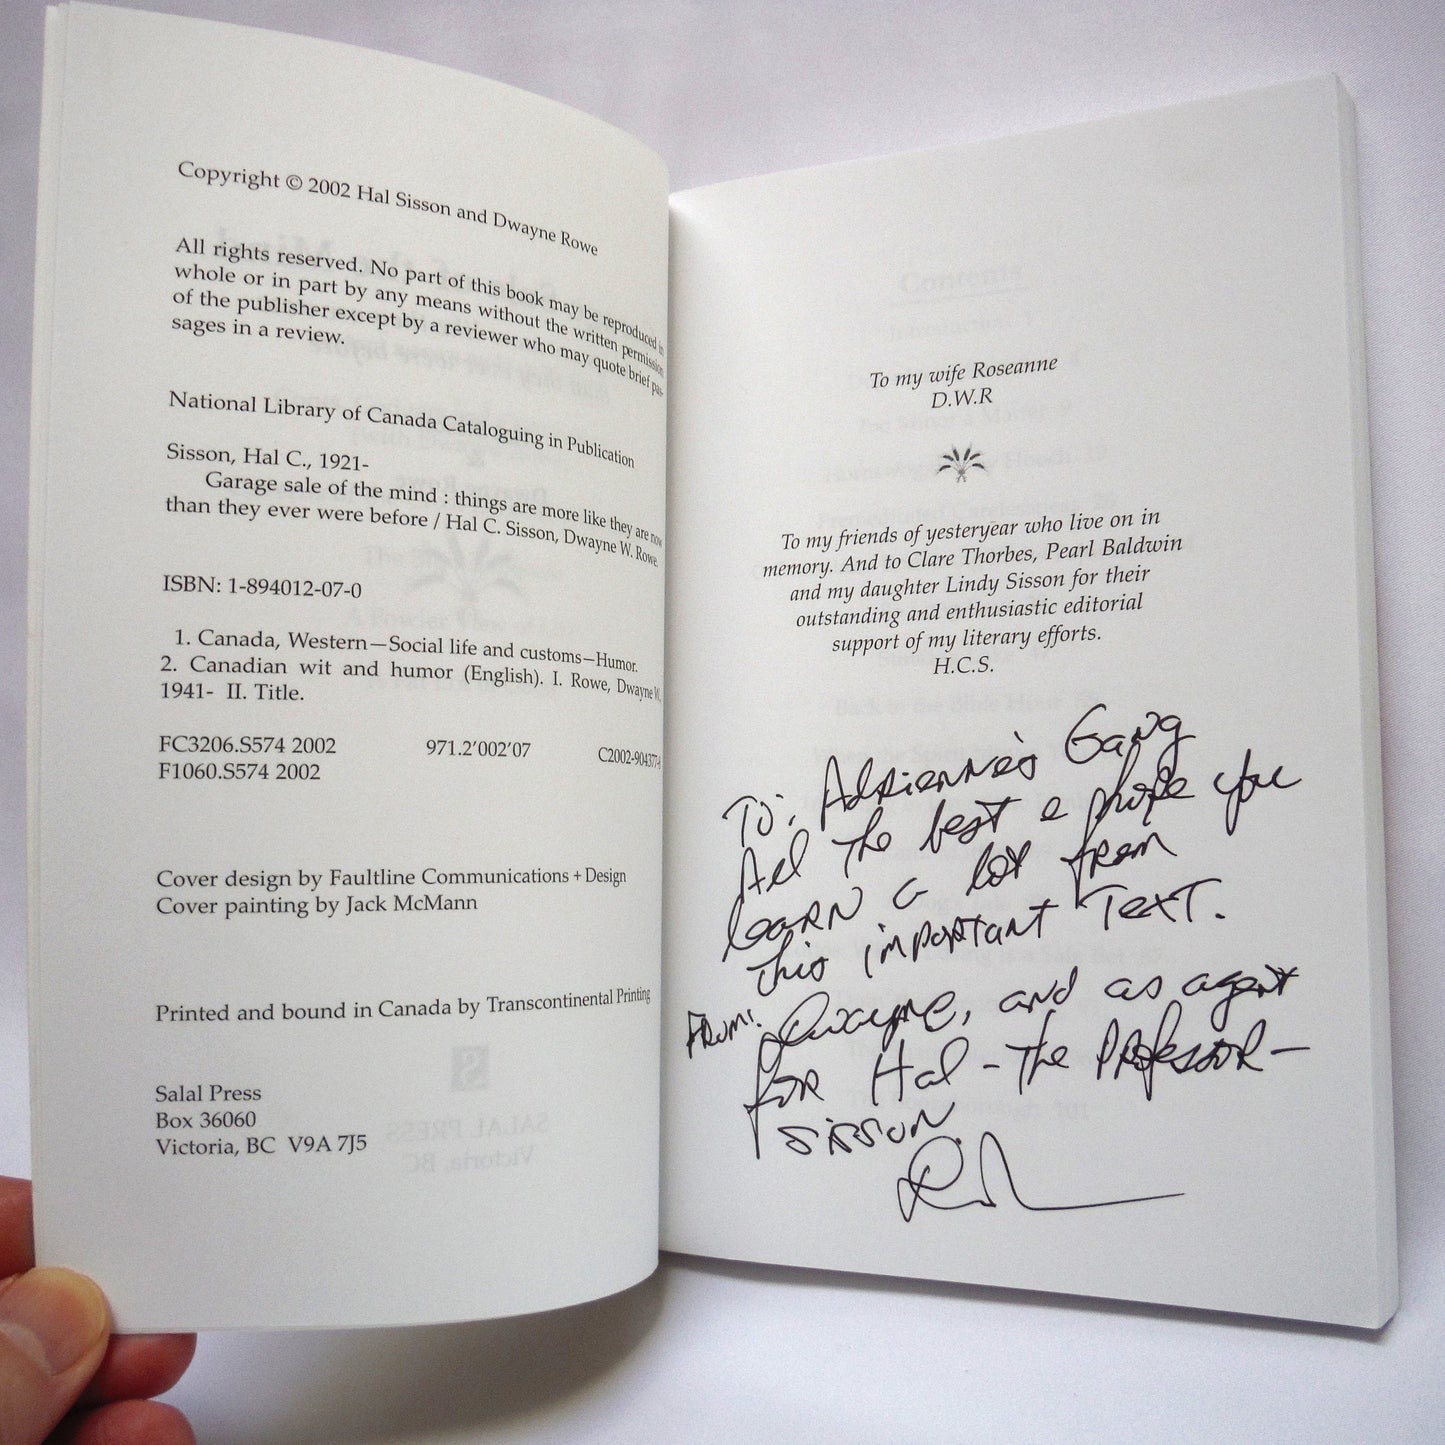 Copyright © 2002 Hal Sisson and Dwayne Rowe
All rights reserved. No part of this book may be reproduced in
whole or in part by any means without the written permission
of the publisher except by a reviewer who may quote brief pas-
sages in a review.
National Library of Canada Cataloguing in Publication
Sisson, Hal C., 1921-
Garage sale of the mind : things are more like they are now
than they ever were before / Hal C. Sisson, Dwayne W. Rowe.
ISBN: 1-894012-07-0
1. Canada, Western—Social life and customs—Humor.
2. Canadian wit and humor (English). I. Rowe, Dwayne W.,
1941- II. Title.
FC3206.S574 2002 971.2'002'07 C2002-904377-8
F1060.S574 2002
Cover design by Faultline Communications + Design
Cover painting by Jack McMann
Printed and bound in Canada by Transcontinental Printing
Salal Press
Box 36060
Victoria, BC V9A 7J5
To my wife Roseanne
D.W.R
To my friends of yesteryear who live on in
memory. And to Clare Thorbes, Pearl Baldwin
and my daughter Lindy Sisson for their
outstanding and enthusiastic editorial
support of my literary efforts.
H.C.S.
To: Adrienne's Gang
All the best & hope you
learn a lot from
this important text.
From: Dwayne, and as agent
for Hal - the Professor -
Sisson